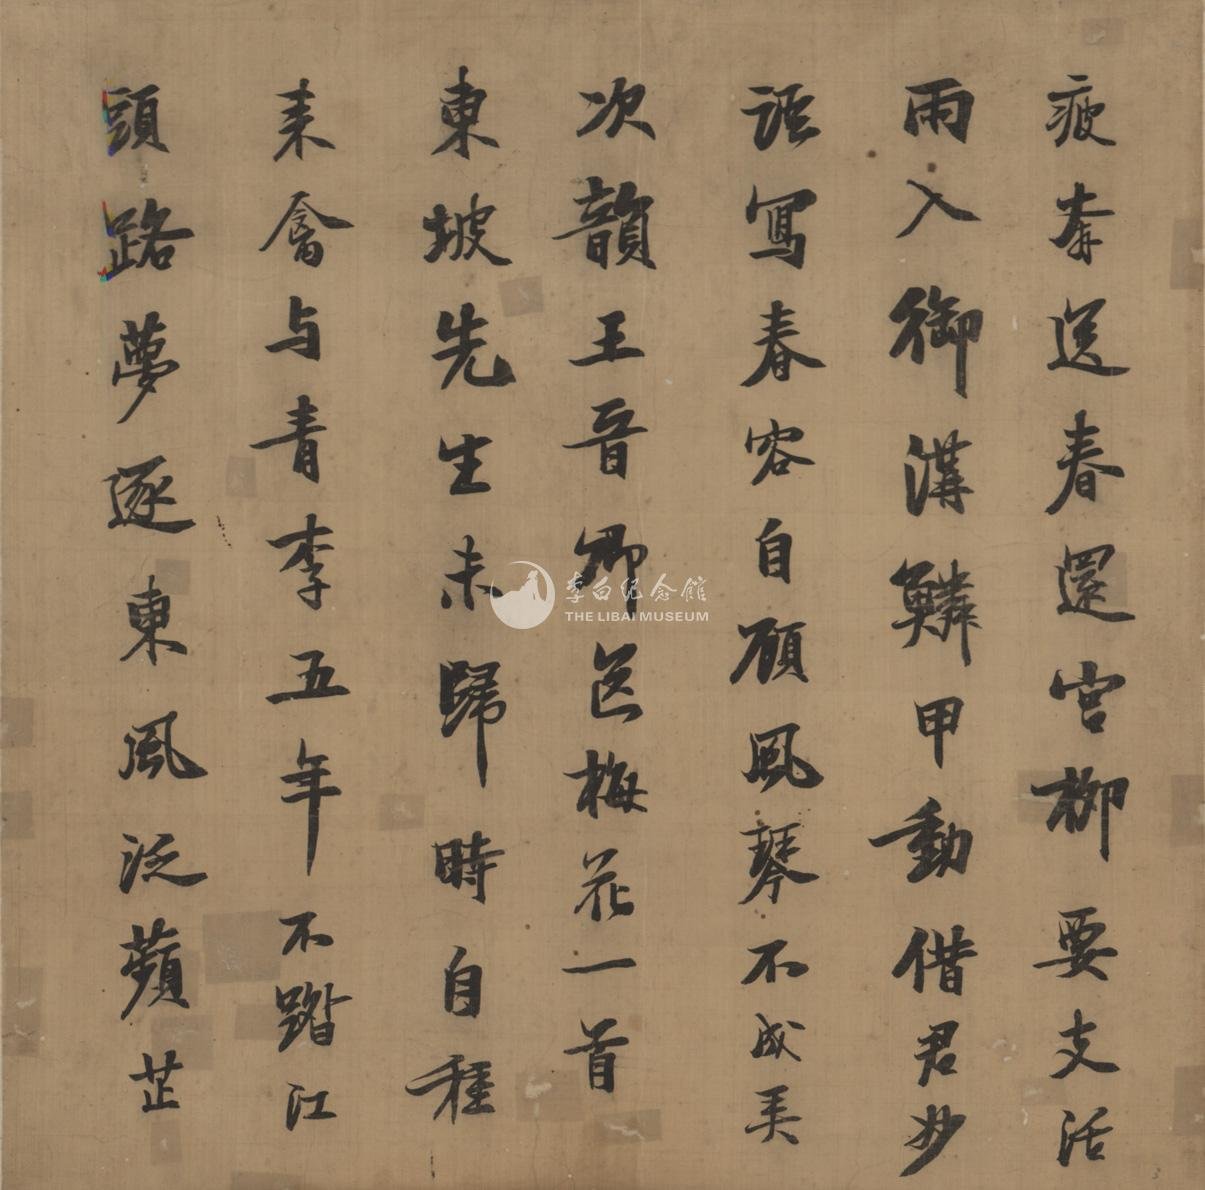 疲奔送春還宮柳要支活
雨入御溝鱗甲動借君妙
語寫春容自顧風琴不成弄
次韻王晉卿送梅花一首
東坡先生未歸時自種
来禽与青李五年不踏江
頭路夢逐東風泛蘋芷
李白纪念館
THE LIBAI MUSEUM